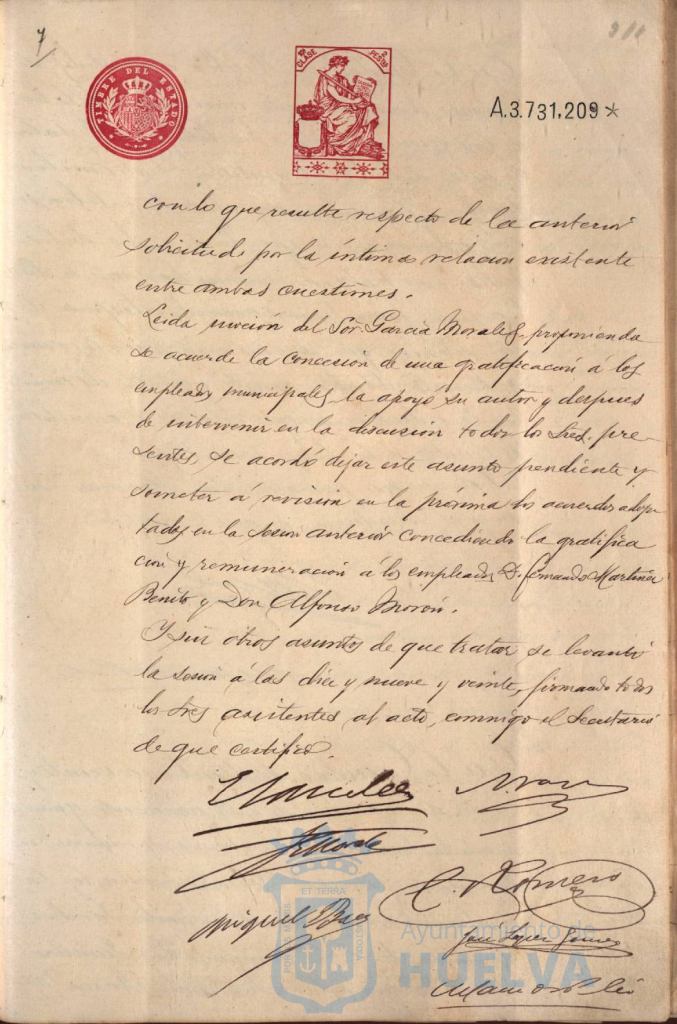 7
911
TIMBRE DEL ESTADO
CLASE
2 PESETAS
A.3.731.209*
con lo que resulte respecto de la anterior
solicitud por la íntima relacion existente
entre ambas cuestiones.
Leida moción del Sor. Garcia Morales, proponiendo
se acuerde la concesión de una gratificación á los
empleados municipales, la apoyó su autor y despues
de intervenir en la discusión todos los Sres. pre-
sentes, se acordó dejar este asunto pendiente y
someter á revisión en la próxima los acuerdos adop
tados en la sesion anterior concediendo la gratifica
cion y remuneración á los empleados D. Fernando Martinez
Benito y Don Alfonso Morón.
Y sin otros asuntos de que tratar se levantó
la sesión á las diez y nueve y veinte, firmando todos
los Sres asistentes al acto, conmigo el Secretario
de que certifico.
C. Romero
Miguel Baez
José Lopez Gomez
ET TERRA
Ayuntamiento de
HUELVA